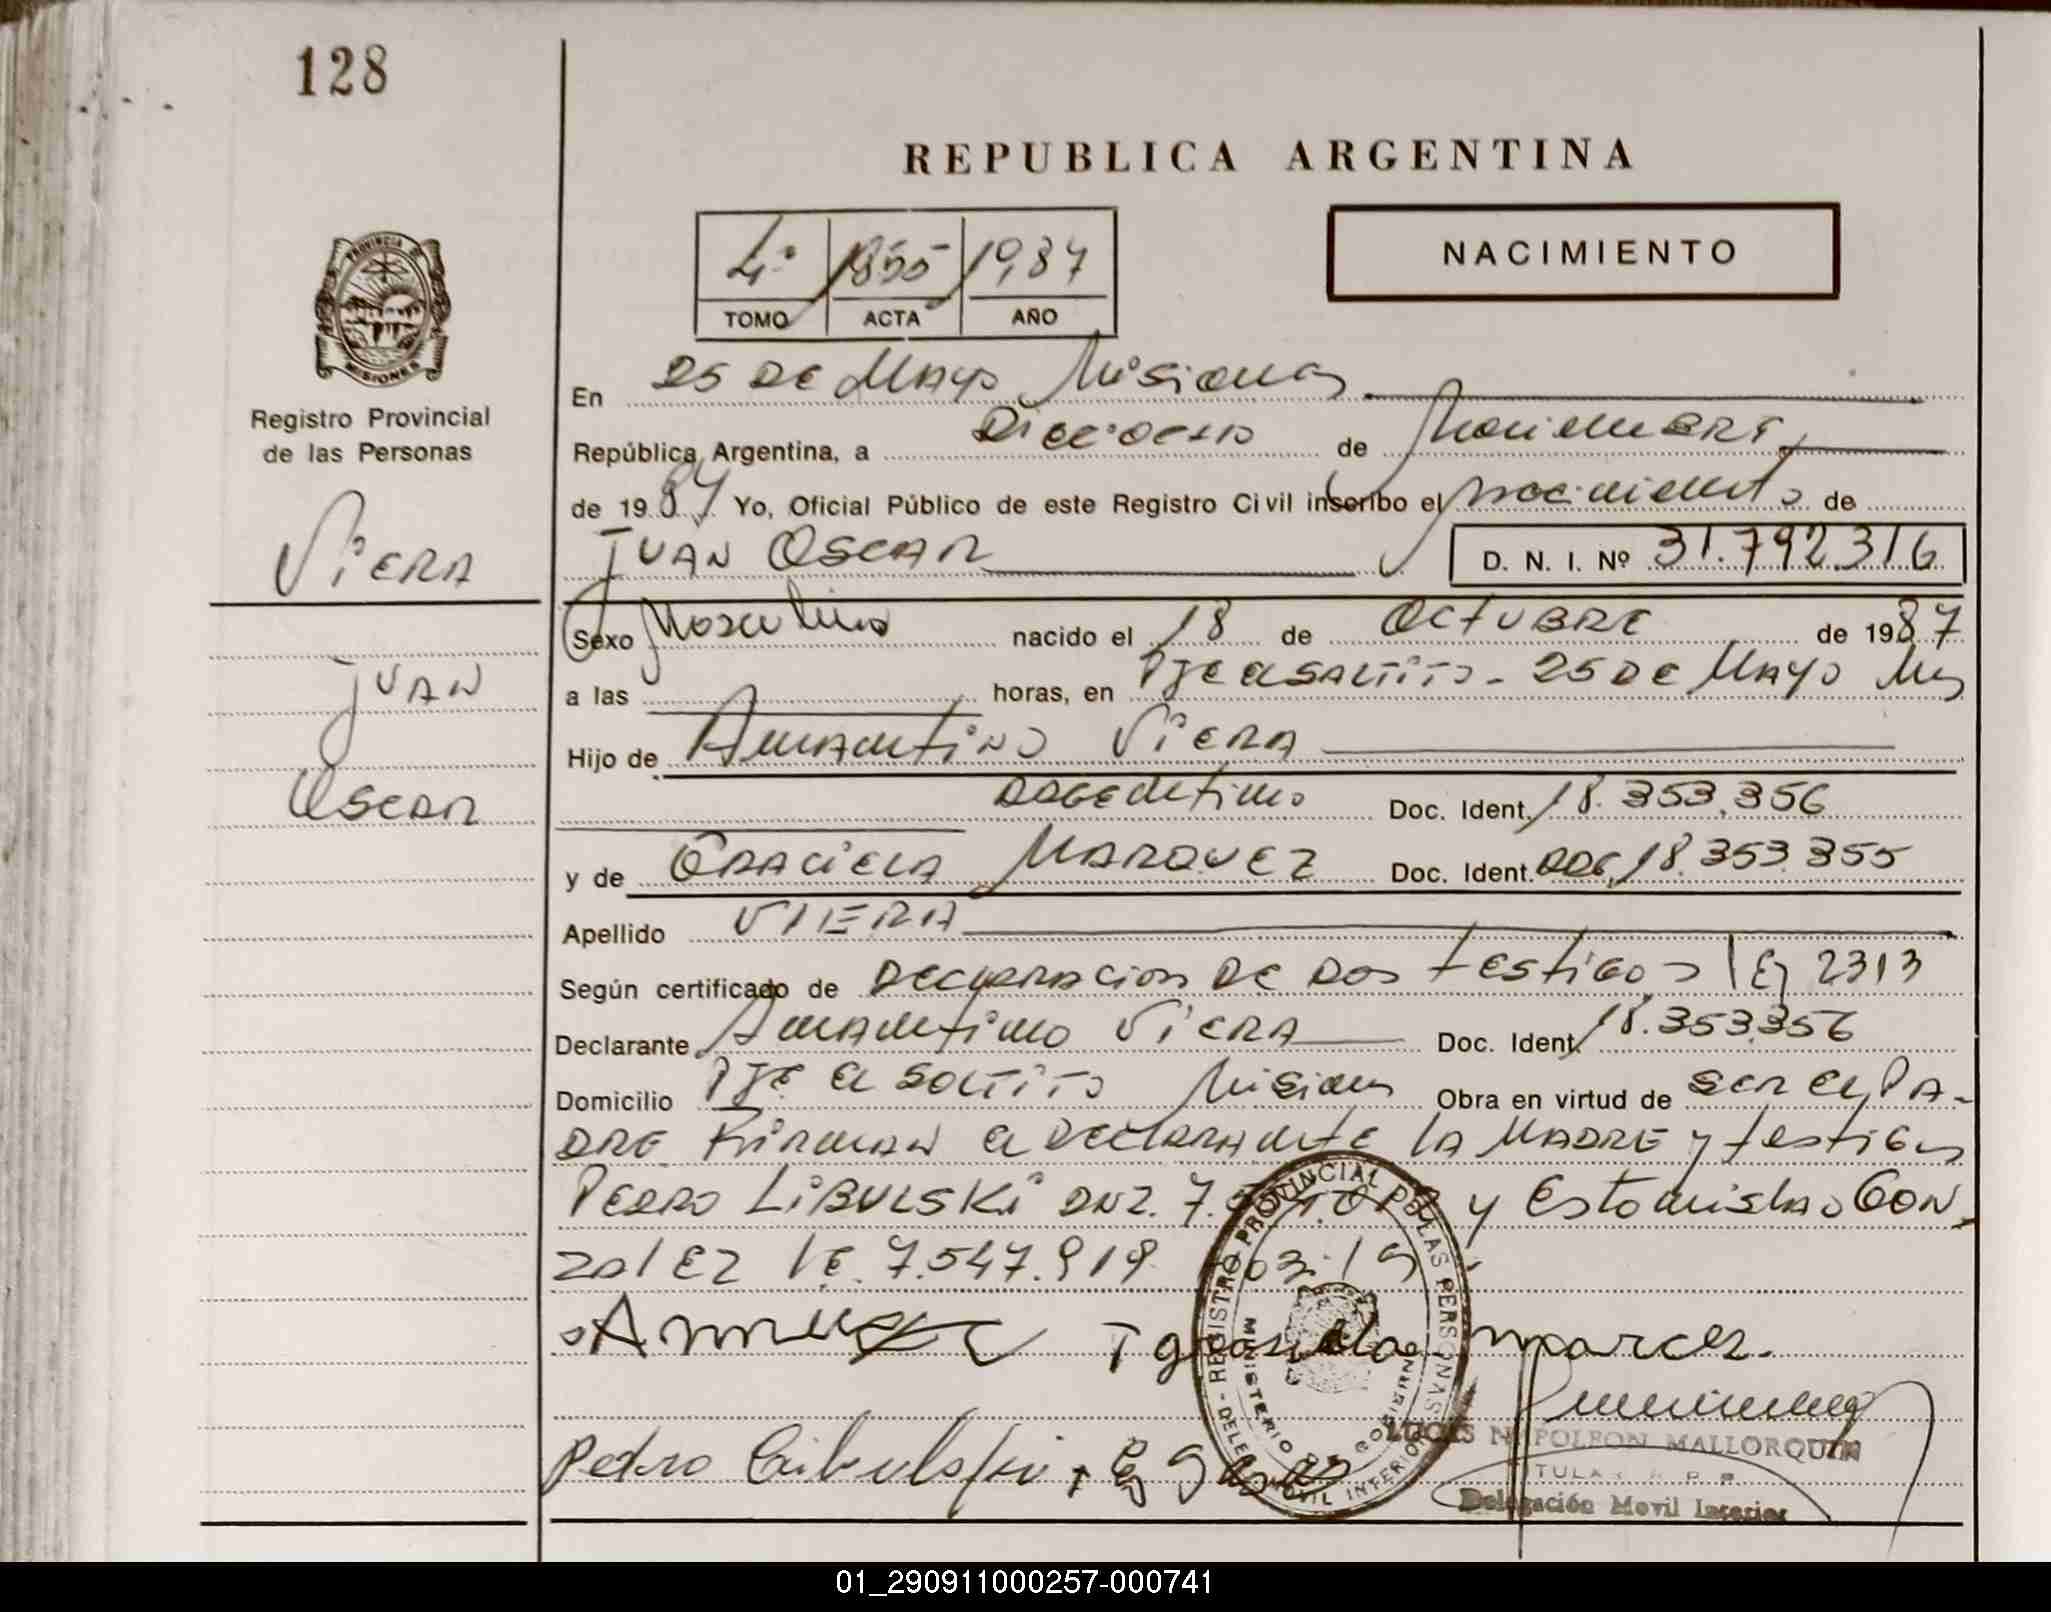 128
REPUBLICA ARGENTINA
4º 1855 1987
TOMO ACTA AÑO
NACIMIENTO
PROVINCIA DE
MISIONES
Registro Provincial
de las Personas
VIERA
JUAN
OSCAR
En 25 DE MAYO Misiones
República Argentina, a Dieciocho de Noviembre
de 1987 Yo, Oficial Público de este Registro Civil inscribo el nacimiento de
JUAN OSCAR D. N. I. Nº 31.792.316
Sexo Masculino nacido el 18 de OCTUBRE de 1987
a las horas, en Pje el SALTITO - 25 DE MAYO Mnes
Hijo de Amantino VIERA
ARGENtino Doc. Ident. 18.353.356
y de GRACIELA MARQUEZ Doc. Ident. ARG. 18.353.355
Apellido VIERA
Según certificado de DECLARACION DE DOS testigos 2313
Declarante Amantino VIERA Doc. Ident. 18.353.356
Domicilio Pje el SALTITO Misiones Obra en virtud de SER EL PA-
DRE FIRMAN el DECLARANTE LA MADRE y testigos
PEDRO LIBULSKI DNI. 7. y Estanislao GON-
zalEZ lE. 7.547.919
marcez.
Pedro
REGISTRO PROVINCIAL DE LAS PERSONAS
MINISTERIO DE GOBIERNO
DELEG. MOVIL INTERIOR
LUCAS NAPOLEON MALLORQUIN
TITULAR R. P. P.
Delegación Movil Interior
01_290911000257-000741